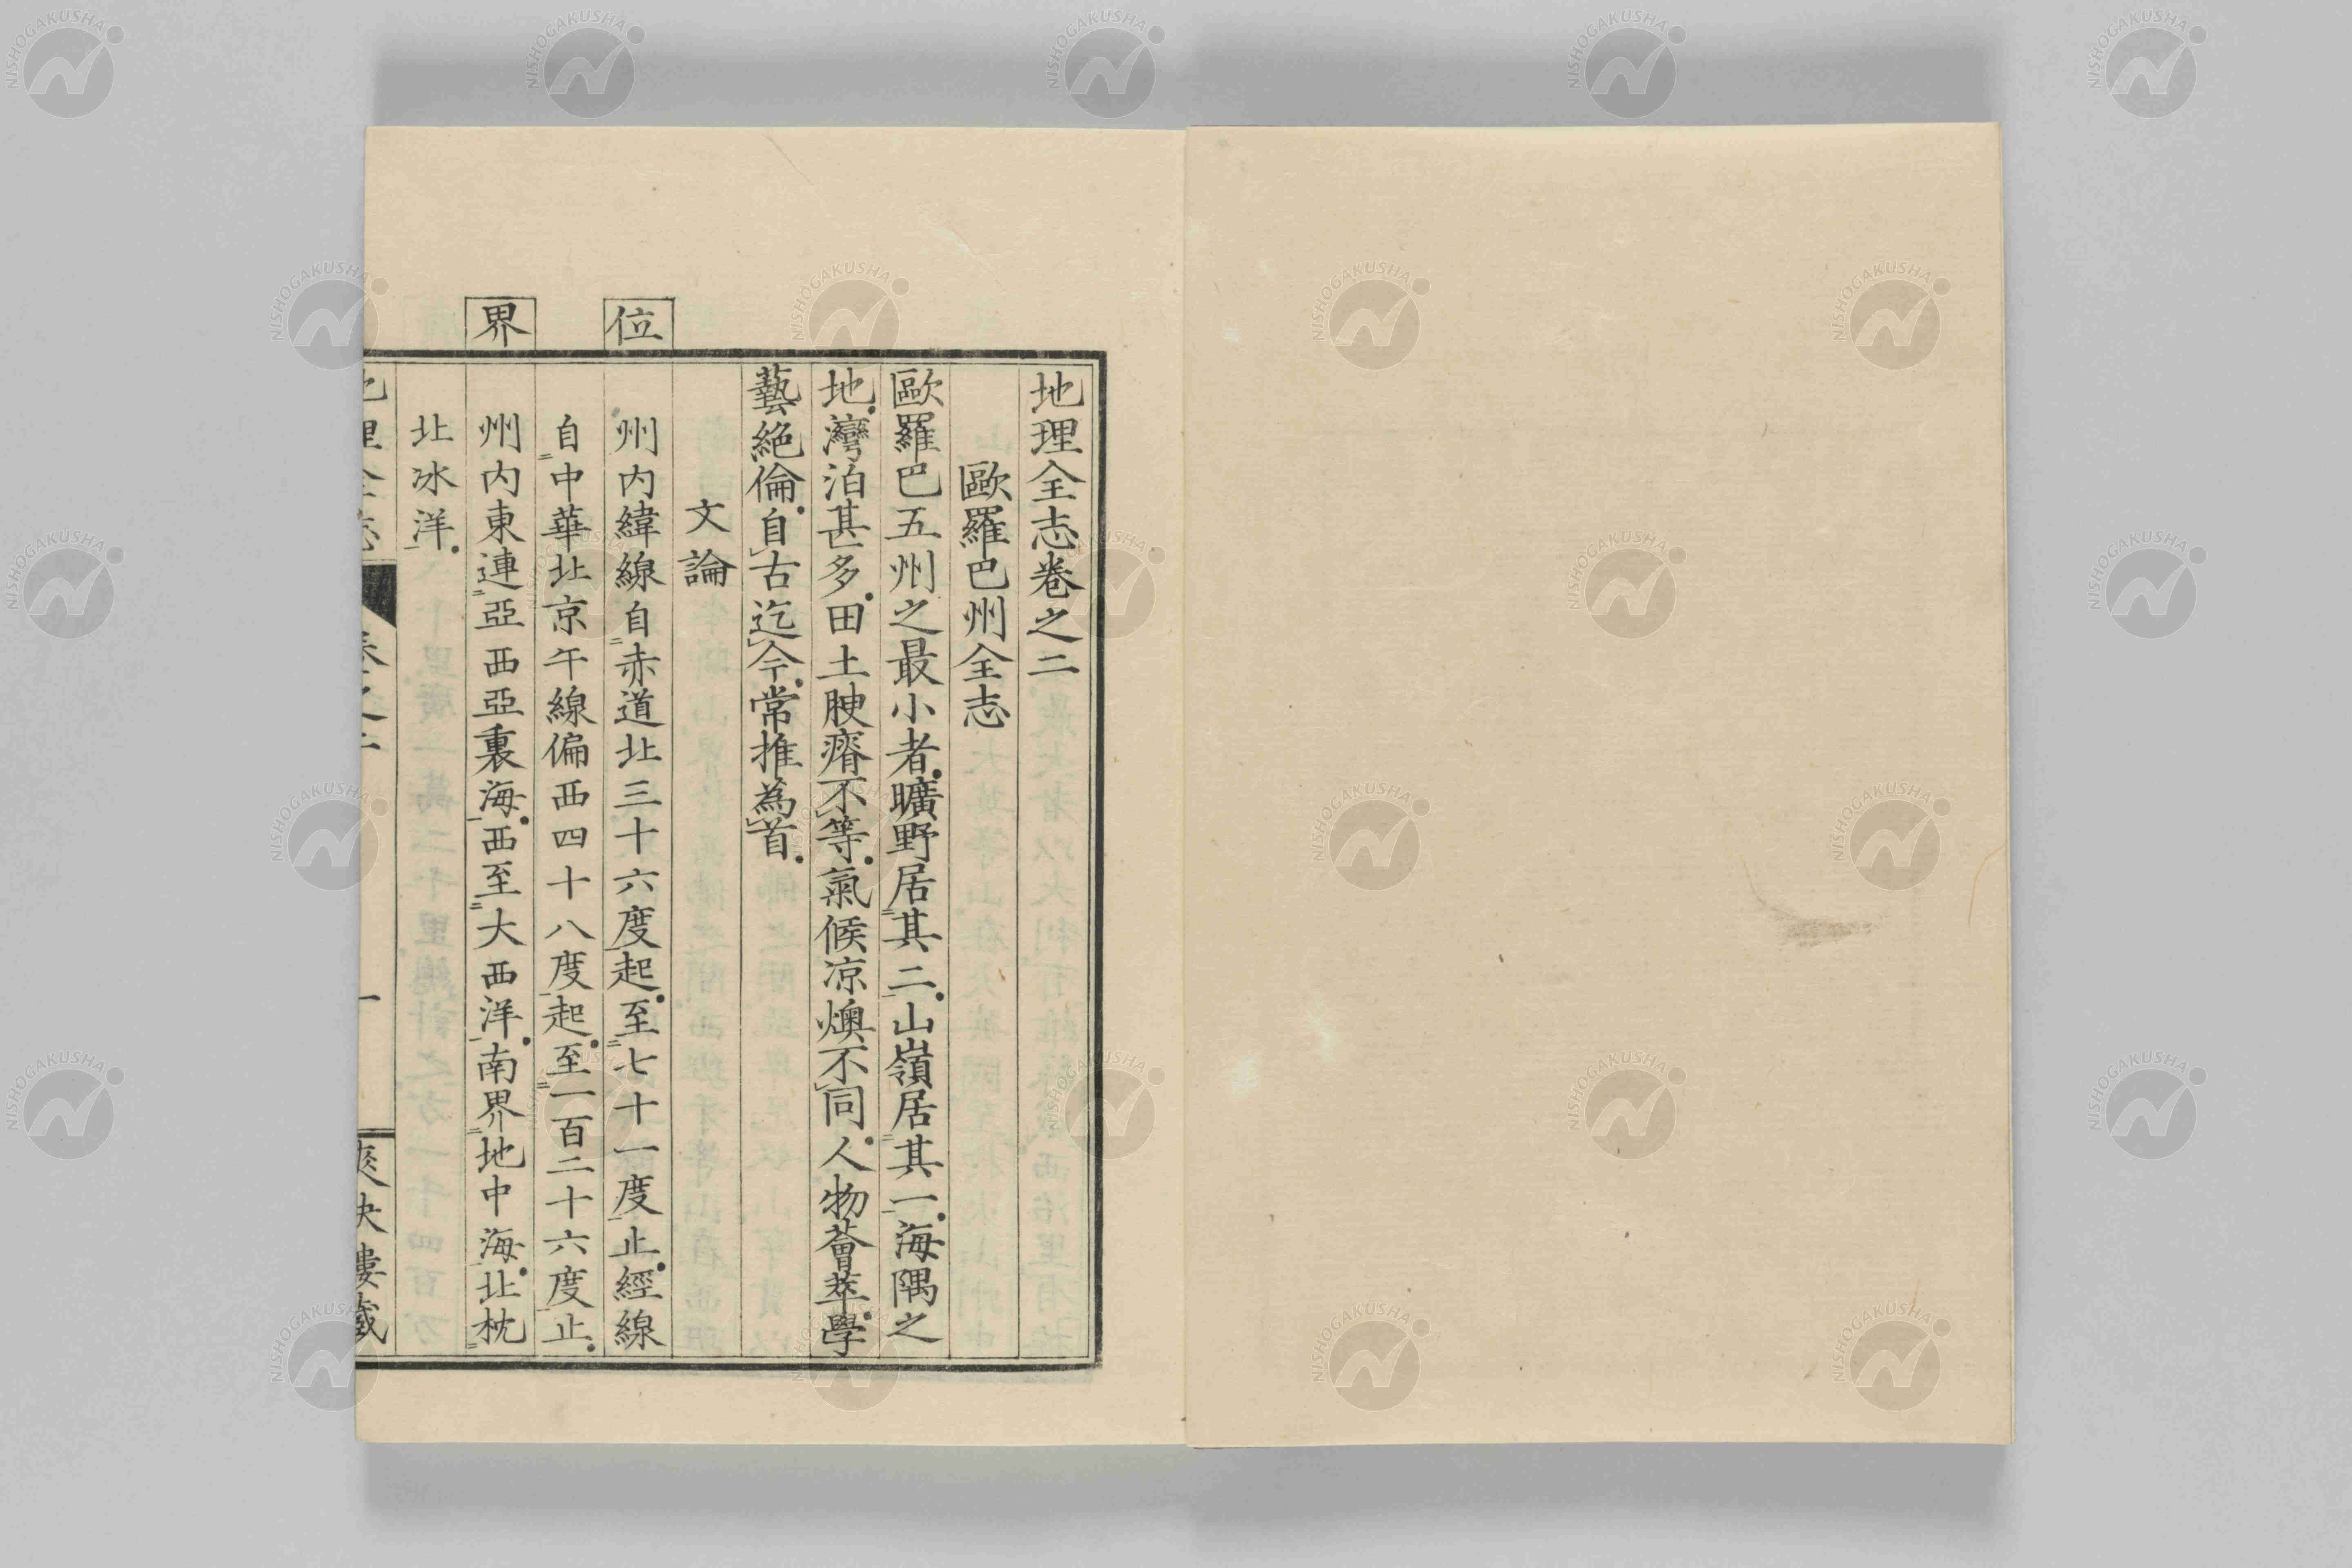 地理全志卷之二
歐羅巴州全志
歐羅巴五州之最小者曠野居其二山嶺居其一海隅之
地灣泊甚多田土腴瘠不等氣候凉燠不同人物薈萃學
藝絕倫自古迄今常推為首
文論
位
州内緯線自赤道北三十六度起至七十一度止經線
自中華北京午線偏西四十八度起至一百二十六度止
界
州内東連亞西亞裏海西至大西洋南界地中海北枕
北冰洋
地理全志 卷之二 一 爽快樓藏
NISHOGAKUSHA